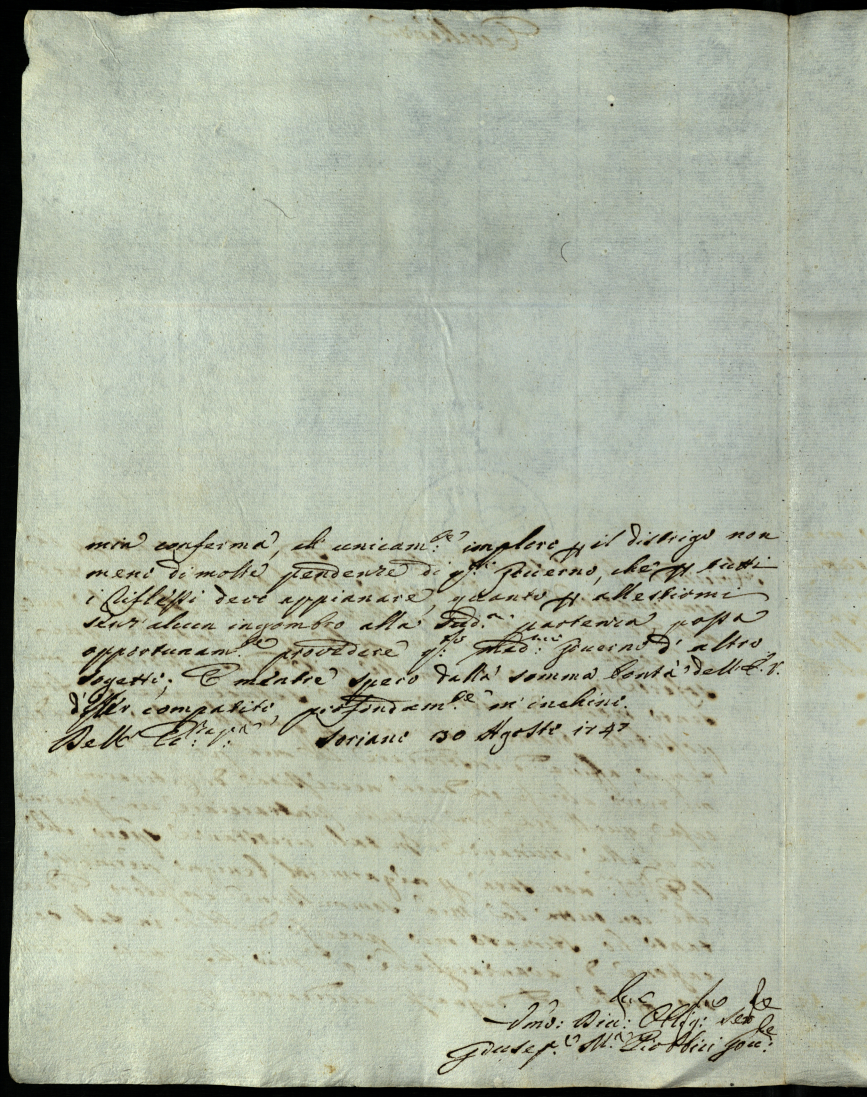 mia conferma, ch'unicam:te imploro p il distrigo non
meno di molte pendenze di q:sto Governo, che p tutti
i riflessi devo appianare, quanto p allestirmi
senz'alcun ingombro alla sud:a partenza possa
opportunam:te provedere q:sto mad:mo Governo d'altro
sogetto; E mentre spero dalla somma bontà dell'E.V.
d'esser compatito, profondam:te m'inchino.
Dell' Ecc:za V:a Soriano 30 Agosto 1747
Umo: Div: Oblig: Ser:re
Giusep:e M:a Gov:re